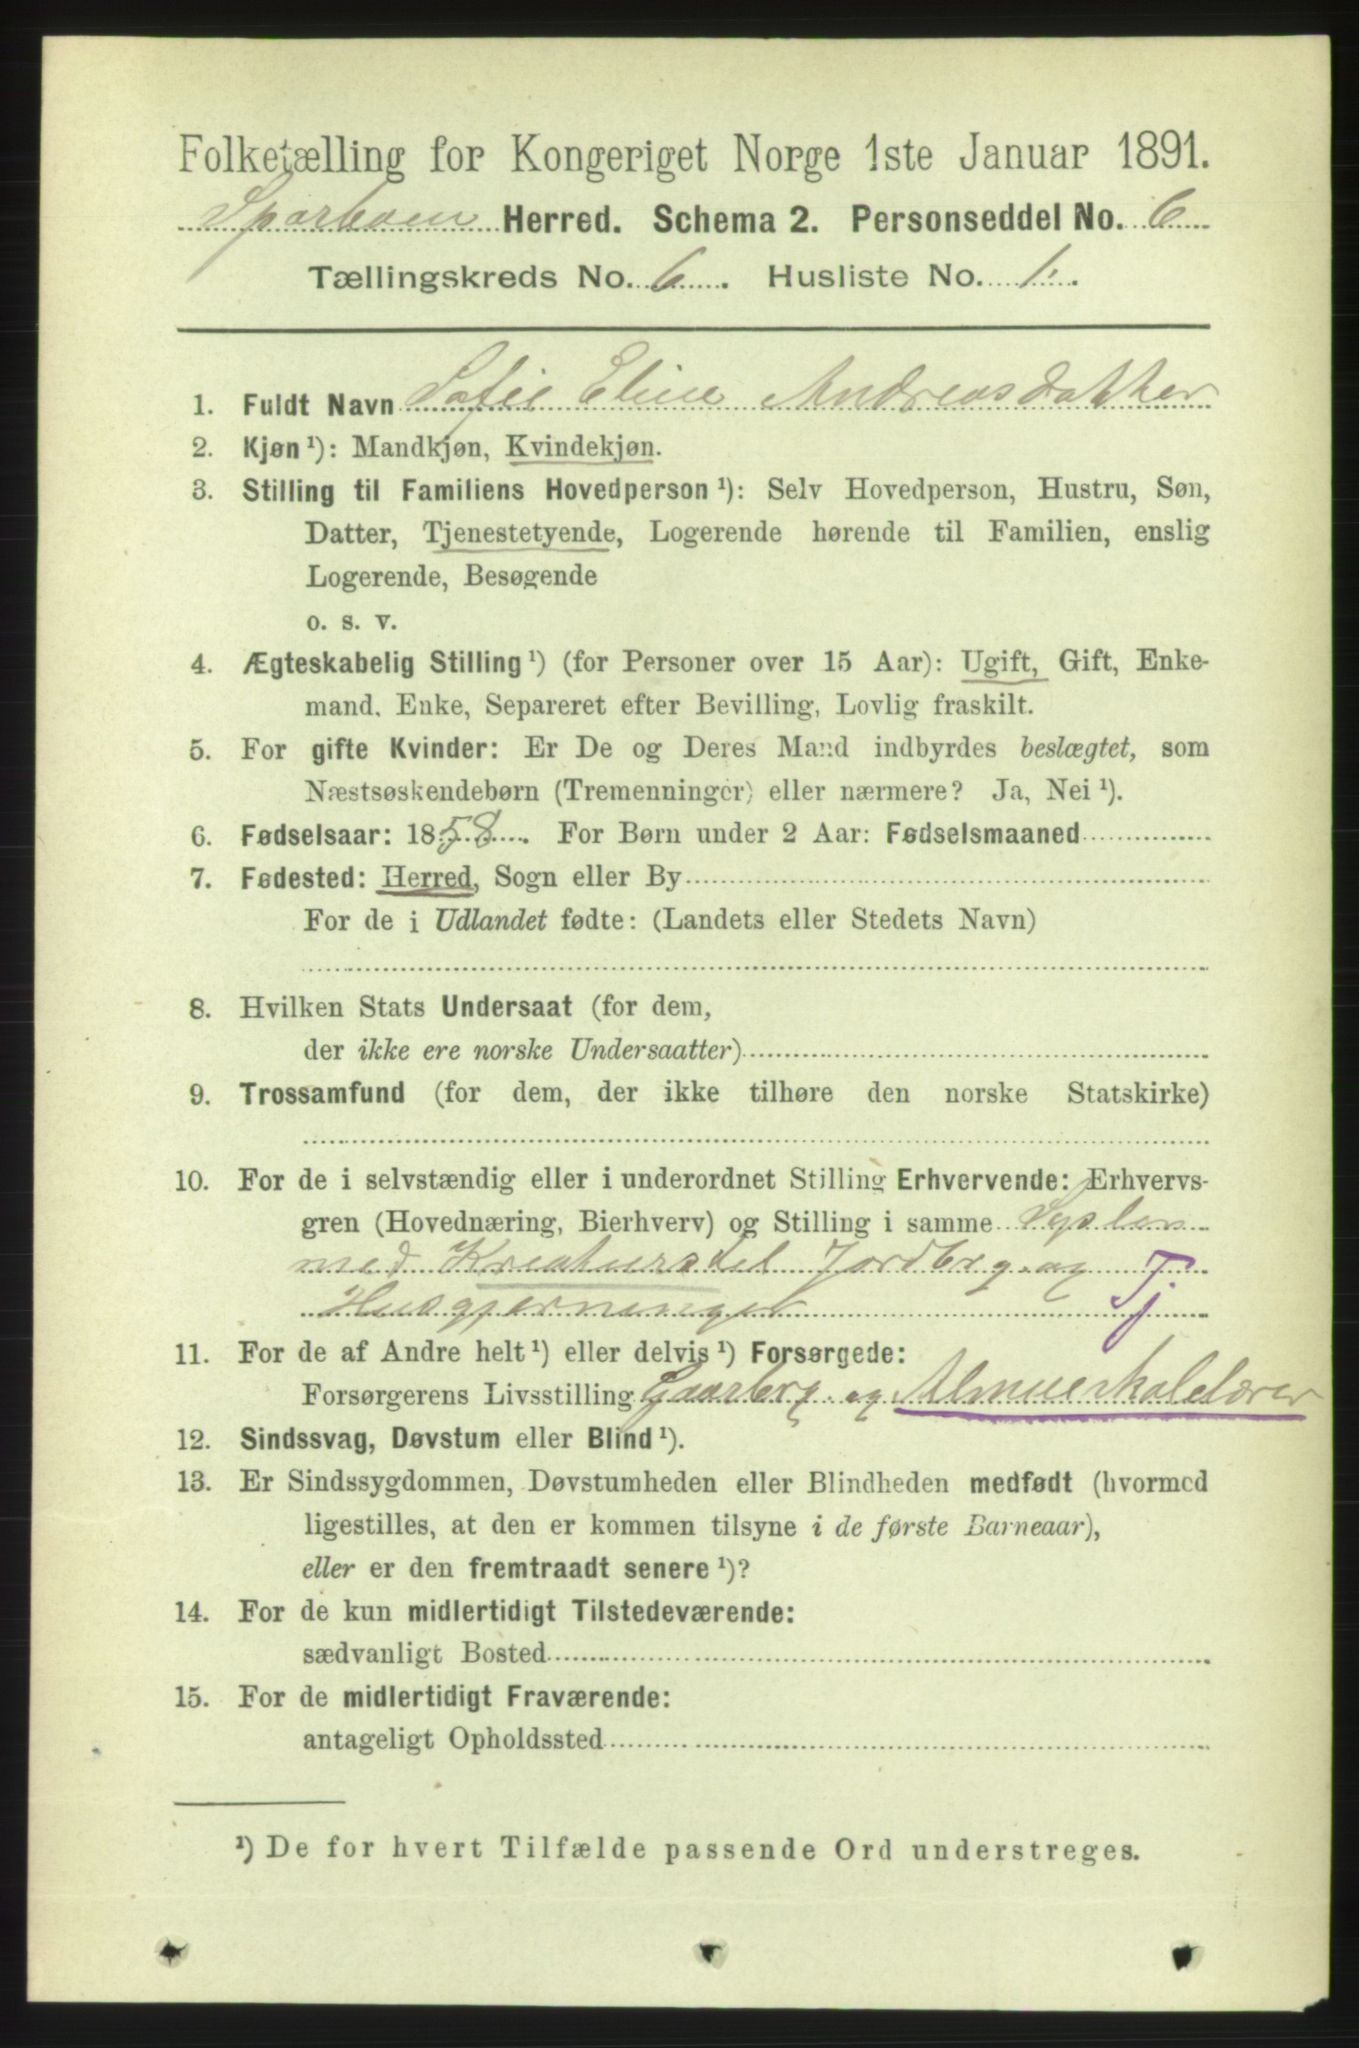 Folketælling for Kongeriget Norge 1ste Januar 1891.
Sparbuen Herred. Schema 2. Personseddel No. 6
Tællingskreds No. 6. Husliste No. 1.
1. Fuldt Navn Sofie Eline Andreasdatter
2. Kjøn ¹): Mandkjøn, Kvindekjøn.
3. Stilling til Familiens Hovedperson ¹): Selv Hovedperson, Hustru, Søn,
Datter, Tjenestetyende, Logerende hørende til Familien, enslig
Logerende, Besøgende
o. s. v.
4. Ægteskabelig Stilling ¹) (for Personer over 15 Aar): Ugift, Gift, Enke-
mand, Enke, Separeret efter Bevilling, Lovlig fraskilt.
5. For gifte Kvinder: Er De og Deres Mand indbyrdes beslægtet, som
Næstsøskendebørn (Tremenninger) eller nærmere? Ja, Nei ¹).
6. Fødselsaar: 1858. For Børn under 2 Aar: Fødselsmaaned
7. Fødested: Herred, Sogn eller By
For de i Udlandet fødte: (Landets eller Stedets Navn)
8. Hvilken Stats Undersaat (for dem,
der ikke ere norske Undersaatter)
9. Trossamfund (for dem, der ikke tilhøre den norske Statskirke)
10. For de i selvstændig eller i underordnet Stilling Erhvervende: Erhvervs-
gren (Hovednæring, Bierhverv) og Stilling i samme Syslen
med Kreaturstel Jordbrg. og Tj
Husgjerninger
11. For de af Andre helt ¹) eller delvis ¹) Forsørgede:
Forsørgerens Livsstilling Gaarbrg. og Almueskolelærer
12. Sindssvag, Døvstum eller Blind ¹).
13. Er Sindssygdommen, Døvstumheden eller Blindheden medfødt (hvormed
ligestilles, at den er kommen tilsyne i de første Barneaar),
eller er den fremtraadt senere ¹)?
14. For de kun midlertidigt Tilstedeværende:
sædvanligt Bosted
15. For de midlertidigt Fraværende:
antageligt Opholdssted
¹) De for hvert Tilfælde passende Ord understreges.